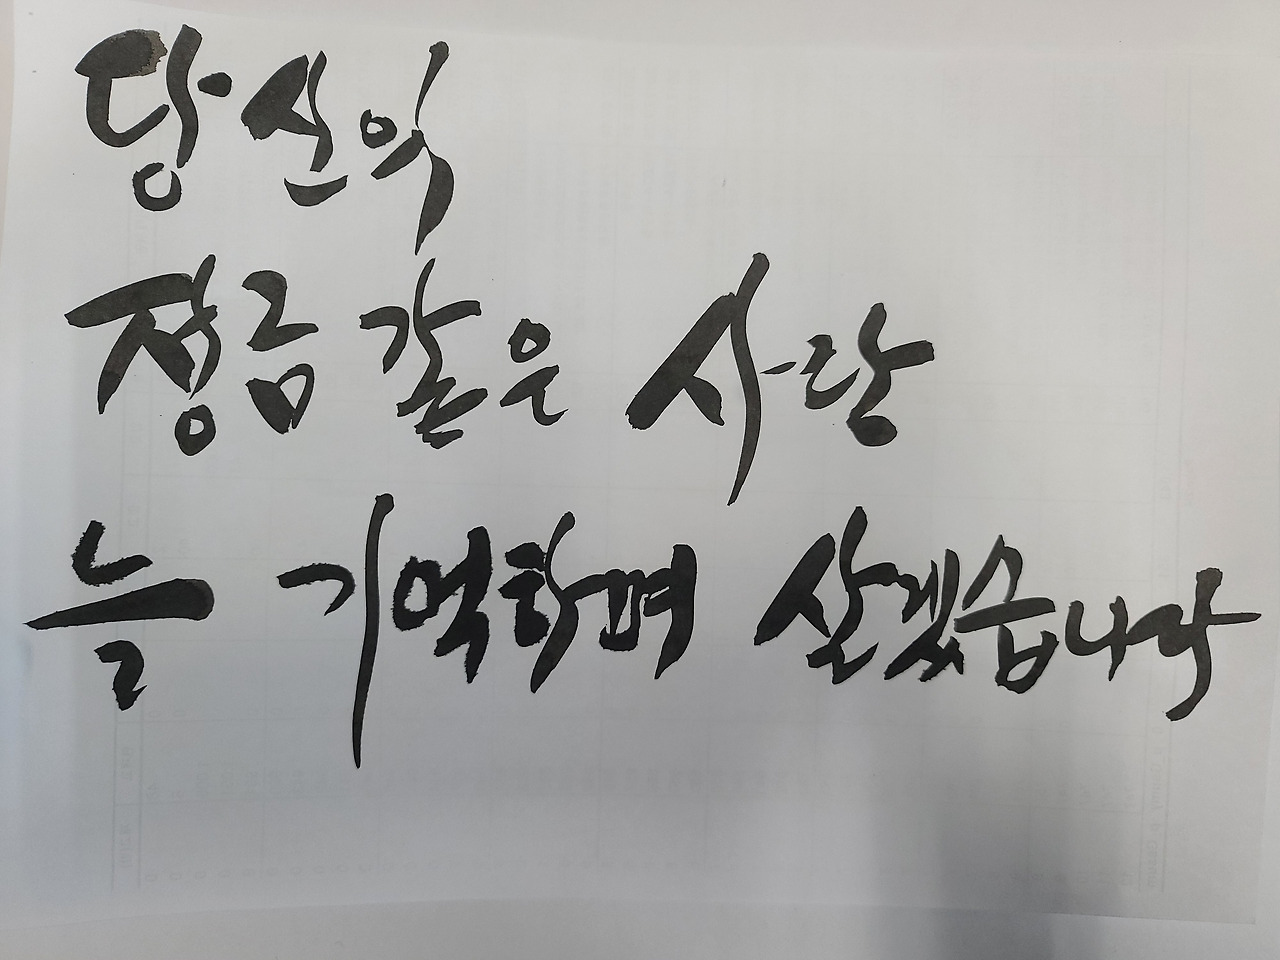 당신의
정금 같은 사랑
늘 기억하며 살겠습니다